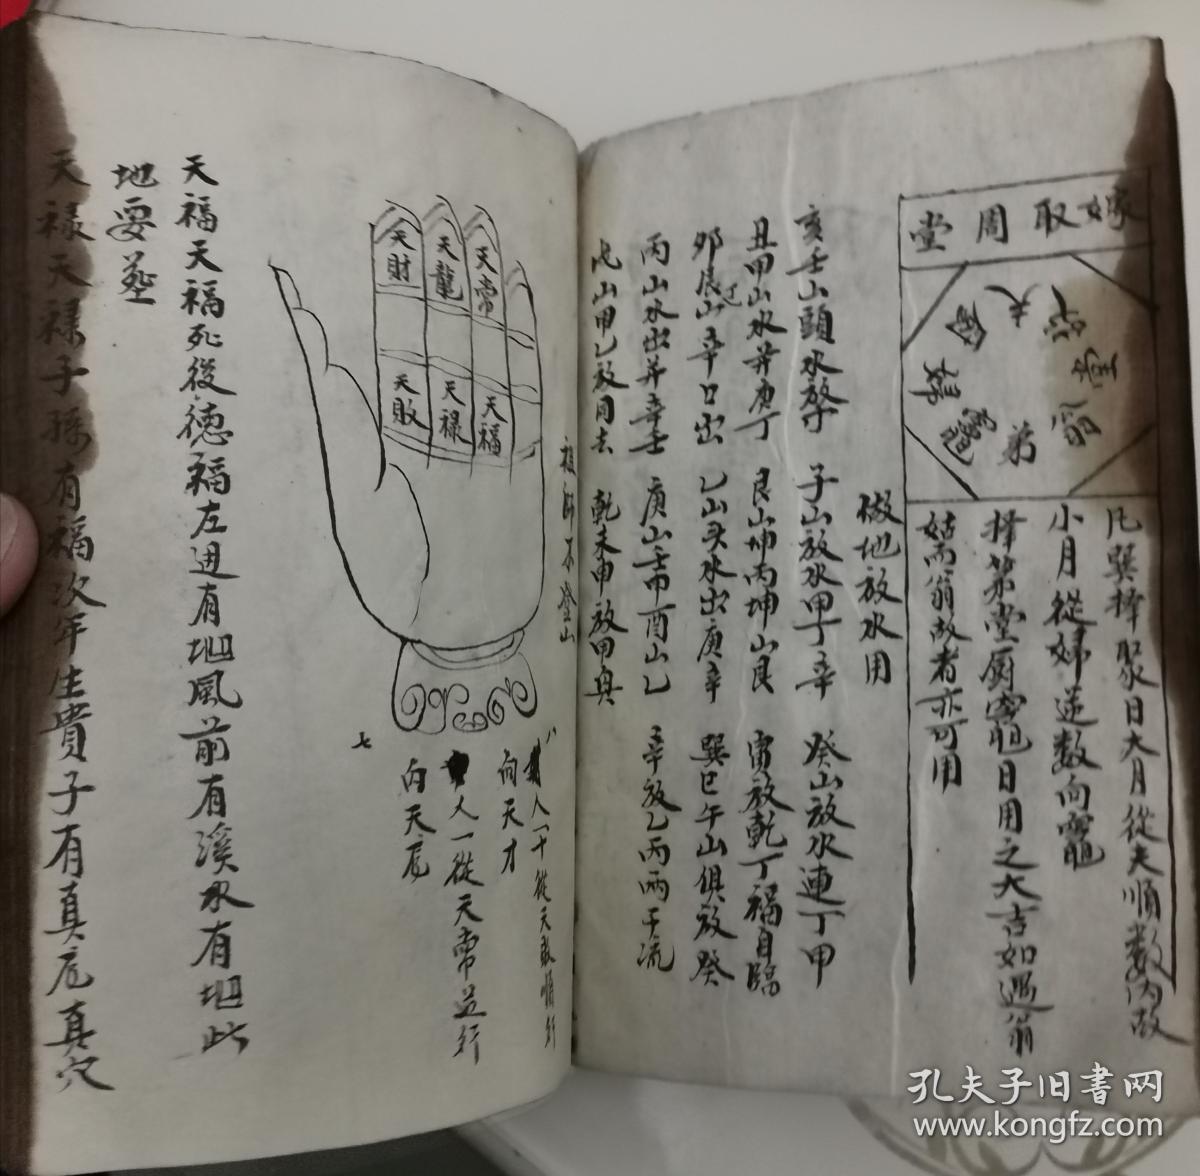 嫁取周堂
夫
姑
堂
翁
弟
竈
婦
廚
凡巽擇聚日大月從夫順数内故
小月從婦逆数向竈
擇第堂厨竈日用之大吉如遇翁
姑而翁故者亦可用
做地放水用
亥壬山頭水放 子山放水甲丁辛 癸山放水連丁甲
丑甲山水并庚丁 艮山坤丙坤山艮 寅放乾丁福自臨
夘辰山辛口出 乙山头水出庚辛 巽巳午山俱放癸
丙山水出并辛壬 庚山壬申酉山乙 辛放乙丙两干流
此山甲乙放同去 乾未申放甲
天財
天龍
天常
天敗
天禄
天福
人一十從天敗順行
向天才
人一從天常逆行
向天
八
七
天福天福死後德福左边有地風前有溪水有地此
地要塟
天禄天禄子孫有福次年生貴子有真 真穴
孔夫子旧书网
www.kongfz.com